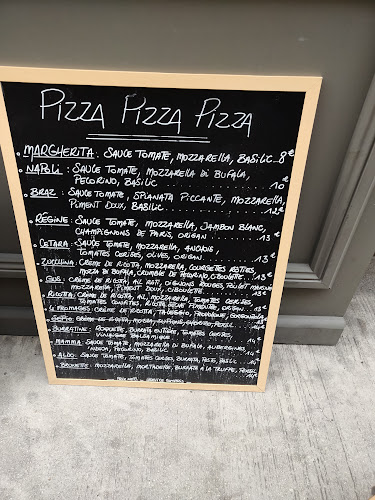 PIZZA PIZZA PIZZA
MARGHERITA: SAUCE TOMATE, MOZZARELLA, BASILIC 8€
NAPOLI: SAUCE TOMATE, MOZZARELLA DI BUFALA,
PECORINO, BASILIC 10€
BRAZ: SAUCE TOMATE, SPIANATA PICCANTE, MOZZARELLA,
PIMENT DOUX, BASILIC 12€
RÉGINE: SAUCE TOMATE, MOZZARELLA, JAMBON BLANC,
CHAMPIGNONS DE PARIS, ORIGAN 13€
CETARA: SAUCE TOMATE, MOZZARELLA, ANCHOIS,
TOMATES CERISES, OLIVES, ORIGAN 13€
ZUCCHINA: CRÈME DE RICOTA, MOZZARELLA, COURGETTES RÔTIES,
MOZZA DI BUFALA, CRUMBLE DE PECORINO, CIBOULETTE 13€
CRÈME DE RICOTA, AIL ROTI, OIGNONS ROUGES, POULET MARINÉ
MOZZARELLA, PIMENT DOUX, CIBOULETTE
RICOTTA: CRÈME DE RICOTA, AIL, MOZZARELLA, TOMATES CERISES,
TOMATES CONFITES, RICOTA FRAÎCHE, ORIGAN 13€
FROMAGES: CRÈME DE RICOTA, TALEGGIO, PROVOLONE, GORGONZOLA
CRÈME DE RICOTA
BURRATINE: ROQUETTE, BURRATA ENTIÈRE, TOMATES CERISES,
VINAIGRE BALSAMIQUE 14€
MAMMA: SAUCE TOMATE, MOZZARELLA DI BUFALA, AUBERGINES,
PECORINO, BASILIC
ALDO: SAUCE TOMATE, TOMATES CERISES, BURRATA, PESTO, BASILIC
MOZZARELLA, MORTADELLE, BURRATA A LA TRUFFE, PERSIL